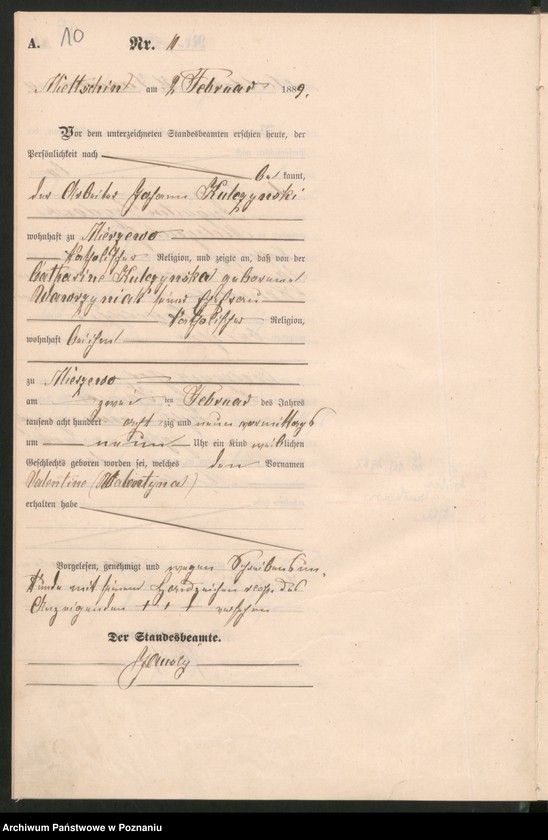 A. 10 Nr. 11
Mieltschin am 2 Februar 1889.
Vor dem unterzeichneten Standesbeamten erschien heute, der
Persönlichkeit nach
be kannt,
der Arbeiter Johann Kulczynski
wohnhaft zu Mierzewo
katholischer Religion, und zeigte an, daß von der
Catharine Kulczynska geborene
Wawrzyniak seiner Ehefrau
katholischer Religion,
wohnhaft bei ihm
zu Mierzewo
am zwei ten Februar des Jahres
tausend acht hundert acht zig und neun vormittags
um neun Uhr ein Kind weiblichen
Geschlechts geboren worden sei, welches den Vornamen
Valentine (Walentyna)
erhalten habe
Vorgelesen, genehmigt und wegen Schreibensun-
kunde mit seinem Handzeichen des
Anzeigenden + + + versehen
Der Standesbeamte.
Archiwum Państwowe w Poznaniu